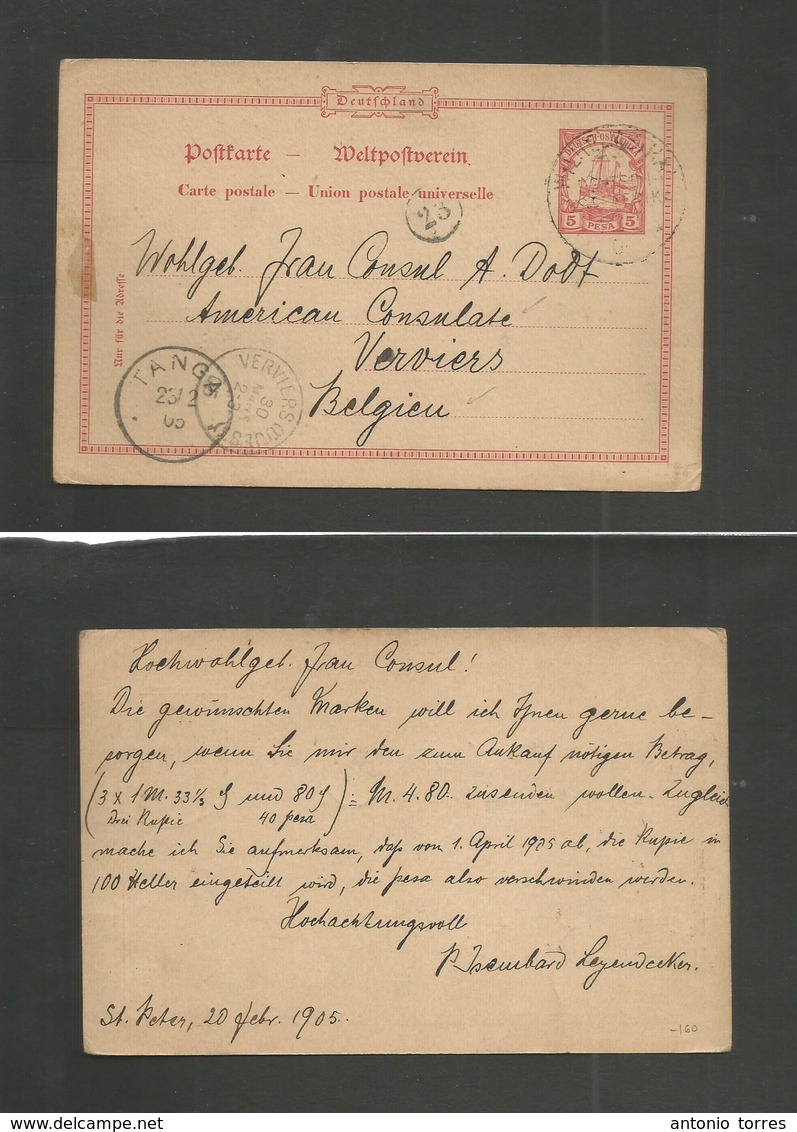 Deutschland
Postkarte — Weltpostverein
Carte postale — Union postale universelle
DEUTSCH-OSTAFRIKA
5 PESA 5
23
Nur für die Adresse
Wohlgeb. Frau Consul A. Dodt
American Consulate
Verviers
Belgien
TANGA
23/2
05
VERVIERS
30
Hochwohlgeb. Frau Consul!
Die gewünschten Marken will ich Ihnen gerne be-
sorgen, wenn Sie mir den zum Ankauf nötigen Betrag,
(3 x 1 M. 33 1/3 ₰ und 80 ₰) = M. 4.80. zusenden wollen. Zugleich
Drei Rupie 40 pesa
mache ich Sie aufmerksam, daß von 1. April 1905 ab, die Rupie in
100 Heller eingeteilt wird, die pesa also verschwinden werden.
Hochachtungsvoll
P. Isembard Leyendecker.
St. Peter, 20 Febr. 1905.
-160
antonio torres